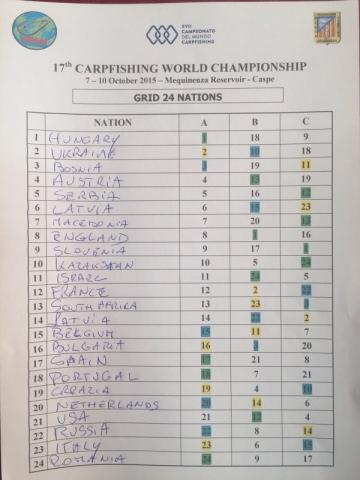 XVII
CAMPEONATO
DEL MUNDO
CARPFISHING
17th CARPFISHING WORLD CHAMPIONSHIP
7 – 10 October 2015 - Mequinenza Reservoir - Caspe
GRID 24 NATIONS
NATION A B C
1 HUNGARY 1 18 9
2 UKRAINE 2 10 18
3 BOSNIA 3 19 11
4 AUSTRIA 4 13 19
5 SERBIA 5 16 12
6 LATVIA 6 15 23
7 MACEDONIA 7 20 13
8 ENGLAND 8 1 16
9 SLOVENIA 9 17 1
10 KAZAKSTAN 10 5 24
11 ISRAEL 11 24 5
12 FRANCE 12 2 22
13 SOUTH AFRIKA 13 23 3
14 LATVIA 14 22 2
15 BELGIUM 15 11 7
16 BULGARIA 16 3 20
17 SPAIN 17 21 8
18 PORTUGAL 18 7 21
19 CROAZIA 19 4 10
20 NETHERLANDS 20 14 6
21 USA 21 12 4
22 RUSSIA 22 8 14
23 ITALY 23 6 15
24 ROMANIA 24 9 17